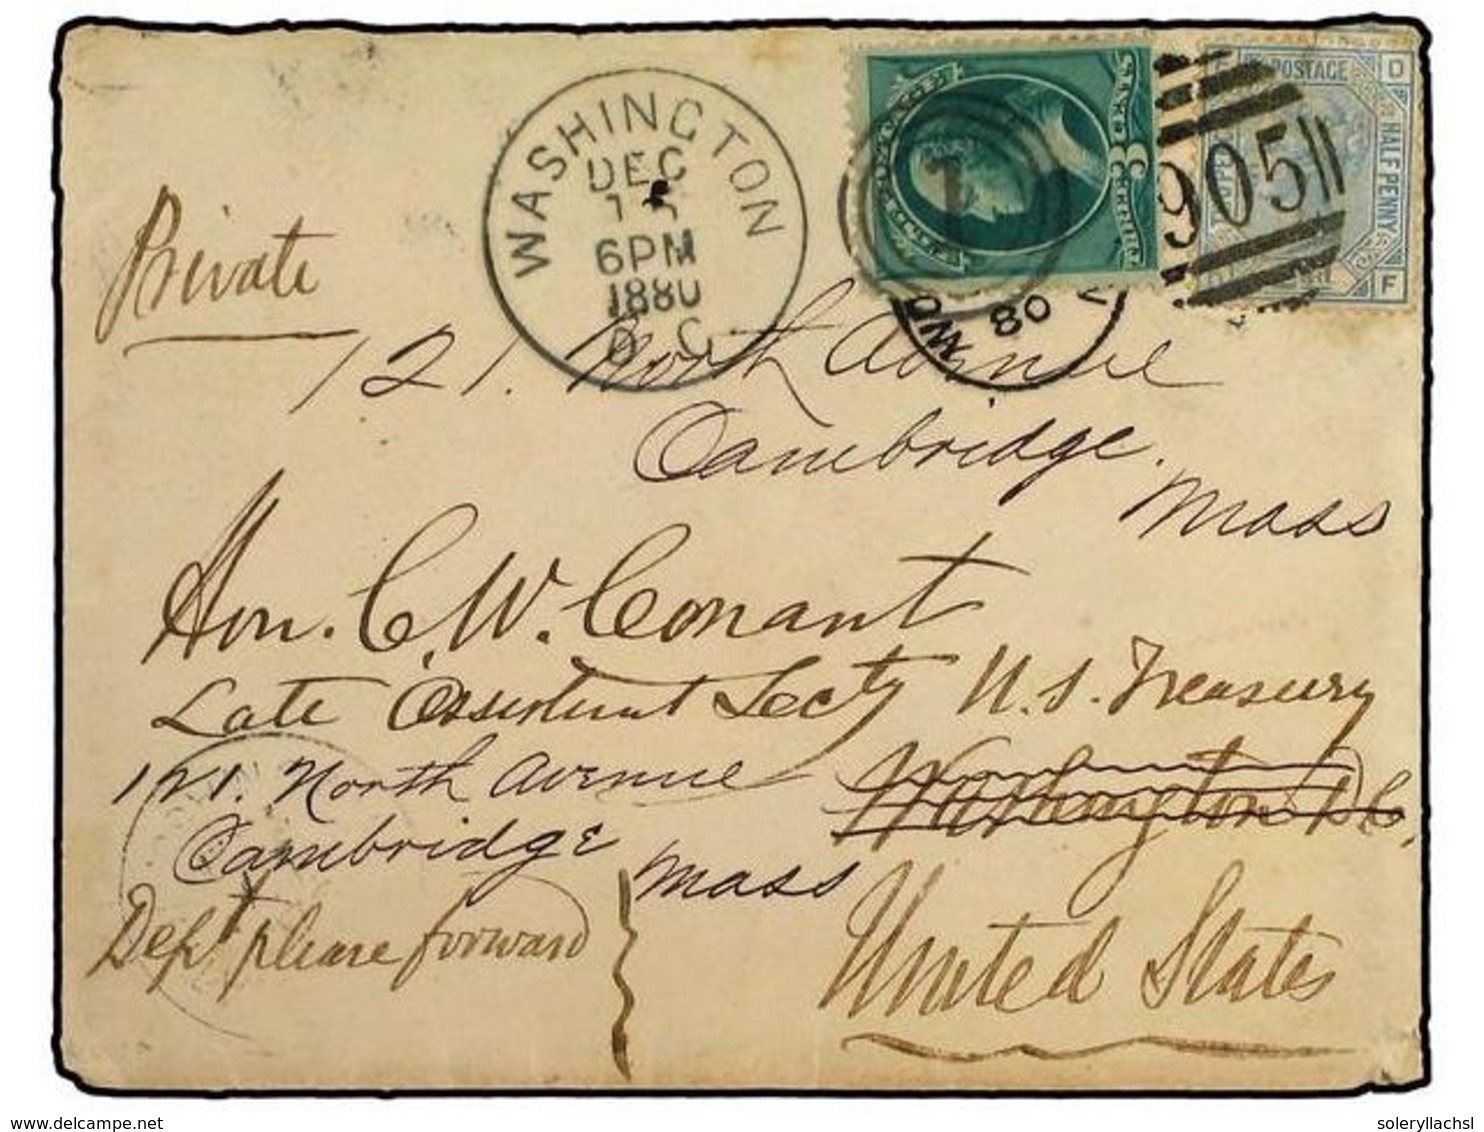 WASHINGTON
DEC
6PM
1880
D.C.
1
80
905
POSTAGE
D
HALF PENNY
F
Private
121. North Avenue
Cambridge.
Mass
Hon. C. W. Conant
Late Assistant Secty U.S. Treasury
121. North Avenue Washington D.C.
Cambridge
Mass
Dept please forward
United States
www.delcampe.net
soleryllachsl